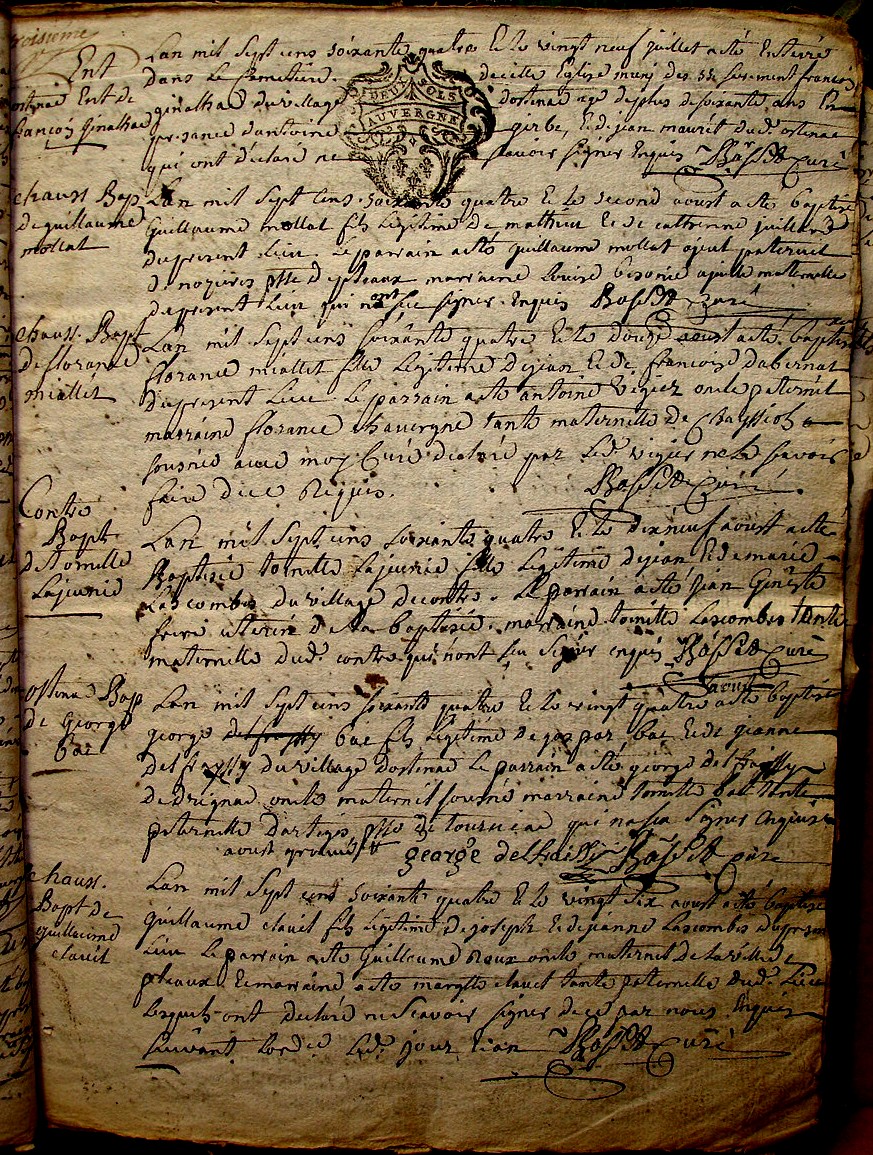 troisieme
Ent
ostenac Ent de
françois ginalhac
Lan mil sept cens soixante quatre et le vingt neuf juillet a esté Enterré
dans le cemetiere de cette Eglise muny des sts sacrement françois
DEUX SOLS
AUVERGNE
ginalhac du village dostenac agé de plus de soixante ans En
presance dantoine girbe, et de jean maurét dud. ostenac
qui ont declaré ne scavoir signer Enquis Bassét Curé
chauss. Bap
de guillaume
mollat
Lan mil sept cens soixante quatre et le second aoust a esté baptisé
Guillaume mollat fils legitime de mathieu et de catherine juilland
du present lieu. Le parrain a esté guillaume mollat ayeul paternel
de noziéres psse d pleaux marraine Louise besonie ayeule maternelle
du present lieu qui n'ont sçu signer Enquis Bassét Curé
chauss. Bapt
de florance
miallét
Lan mil sept cens soixante quatre et le douze aoust a esté baptisée
florance miallet fille legitime de jean et de francoise dabernat
du present lieu. Le parrain a esté antoine vigier oncle paternél
marraine florance chauvergne tante maternelle de
sousnée avec moy Curé declaré par led. vigier ne le scavoir
faire de ce Requis. Bassét Curé.
Contre
Bapt
de toinette
Lajeunie
Lan mil sept cens soixante quatre et le dixneuf aoust a esté
Baptisée toinette Lajeunie fille legitime de jean et de marie
Lascombes du village de contre. Le parrain a esté jean Genéste
frere uterin de la baptisée. marraine toinette Lascombes tante
maternelle dud. contre qui n'ont sçu signer enquis Bassét Curé
ostenac Bap
de George
bac
aoust
Lan mil sept cens soixante quatre et le vingt quatre a esté baptisé
george bac fils legitime de gaspar bac et de jeanne
delfraissy du village dostenac Le parrain a esté george delfraissy
de drignac oncle maternel sousné marraine toinette bac tante
paternelle dartiges psse de tourniac qui na sçu signer enquise
aoust aprouvé
george delfraissy Bassét curé
chauss.
Bapt de
guillaume
clavét
Lan mil sept cens soixante quatre et le vingt six aoust a esté baptisé
guillaume clavét fils legitime de joseph et de jeanne Lascombes du present
lieu Le parrain a esté Guillaume Roux oncle maternel de la ville de
pleaux et marraine a esté margtte clavet tante paternelle dud. Lieu
Lesquels ont declaré ne scavoir signer de ce par nous Enquis
suivant lordce led. jour et an Bassét Curé